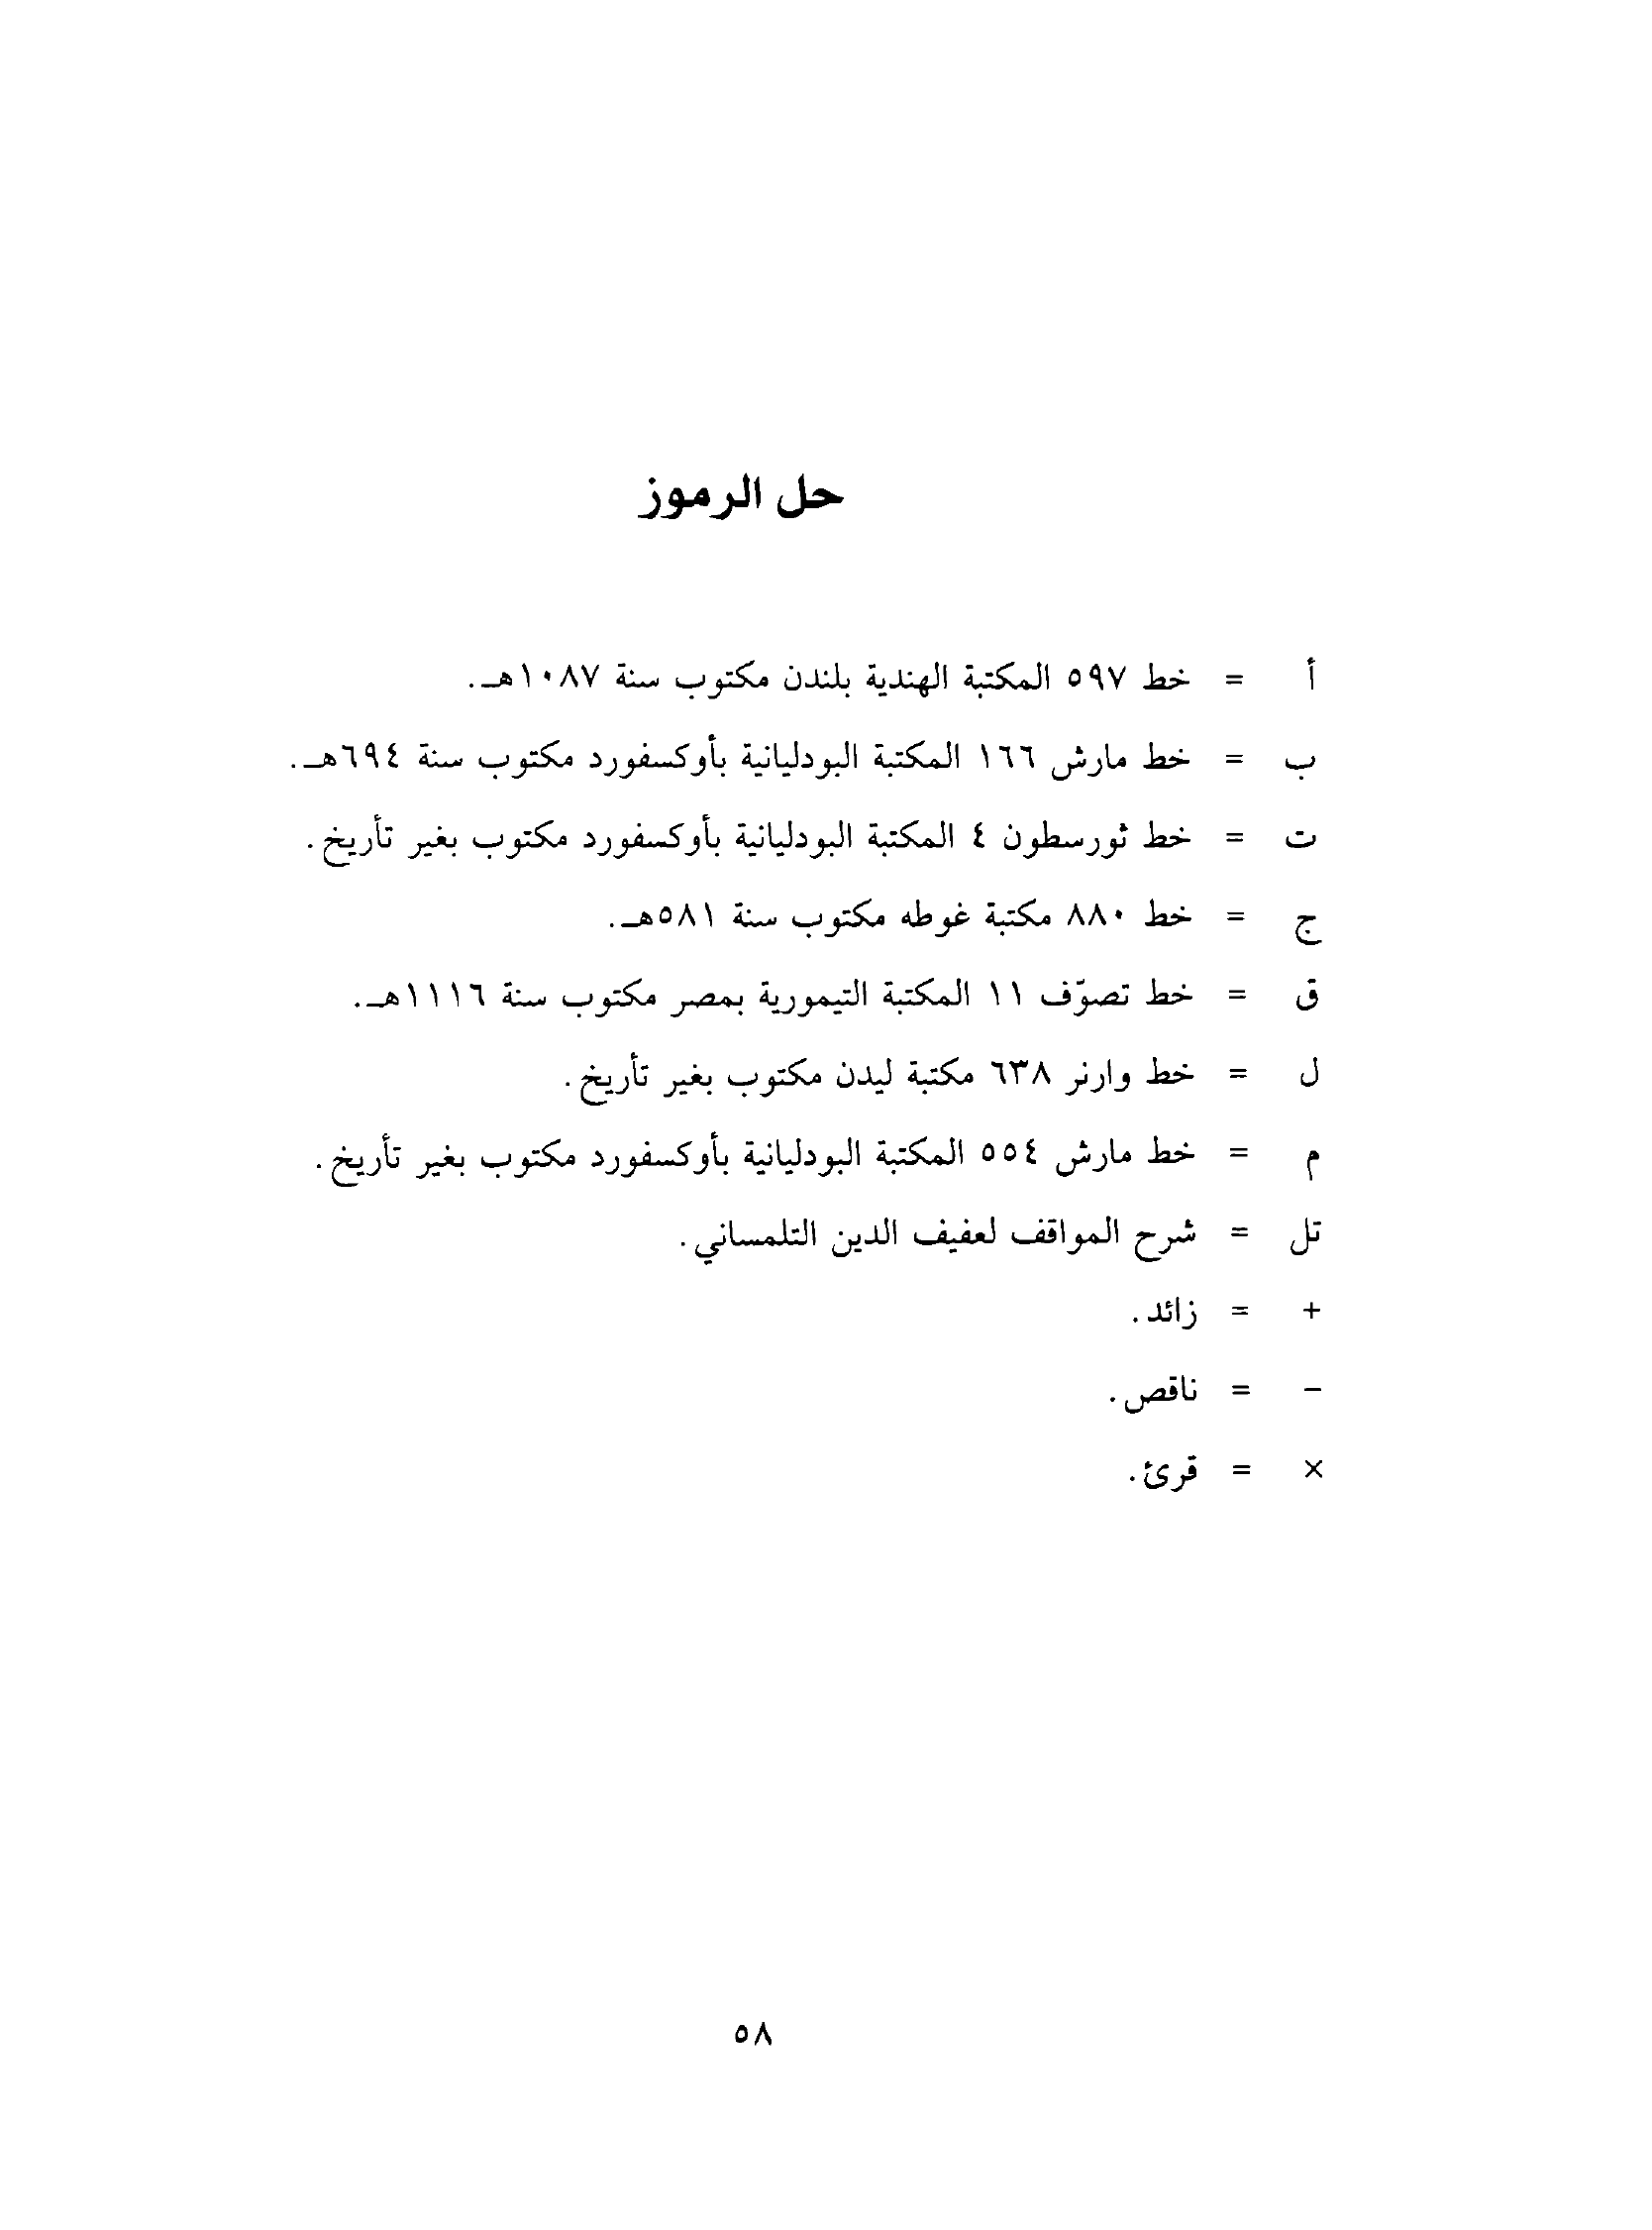 حل الرموز
أ = خط ٥٩٧ المكتبة الهندية بلندن مكتوب سنة ١٠٨٧هـ.
ب = خط مارش ١٦٦ المكتبة البودليانية بأوكسفورد مكتوب سنة ٦٩٤هـ.
ت = خط ثورسطون ٤ المكتبة البودليانية بأوكسفورد مكتوب بغير تأريخ.
ج = خط ٨٨٠ مكتبة غوطه مكتوب سنة ٥٨١هـ.
ق = خط تصوّف ١١ المكتبة التيمورية بمصر مكتوب سنة ١١١٦هـ.
ل = خط وارنر ٦٣٨ مكتبة ليدن مكتوب بغير تأريخ.
م = خط مارش ٥٥٤ المكتبة البودليانية بأوكسفورد مكتوب بغير تأريخ.
تل = شرح المواقف لعفيف الدين التلمساني.
+ = زائد.
– = ناقص.
× = قرئ.
٥٨